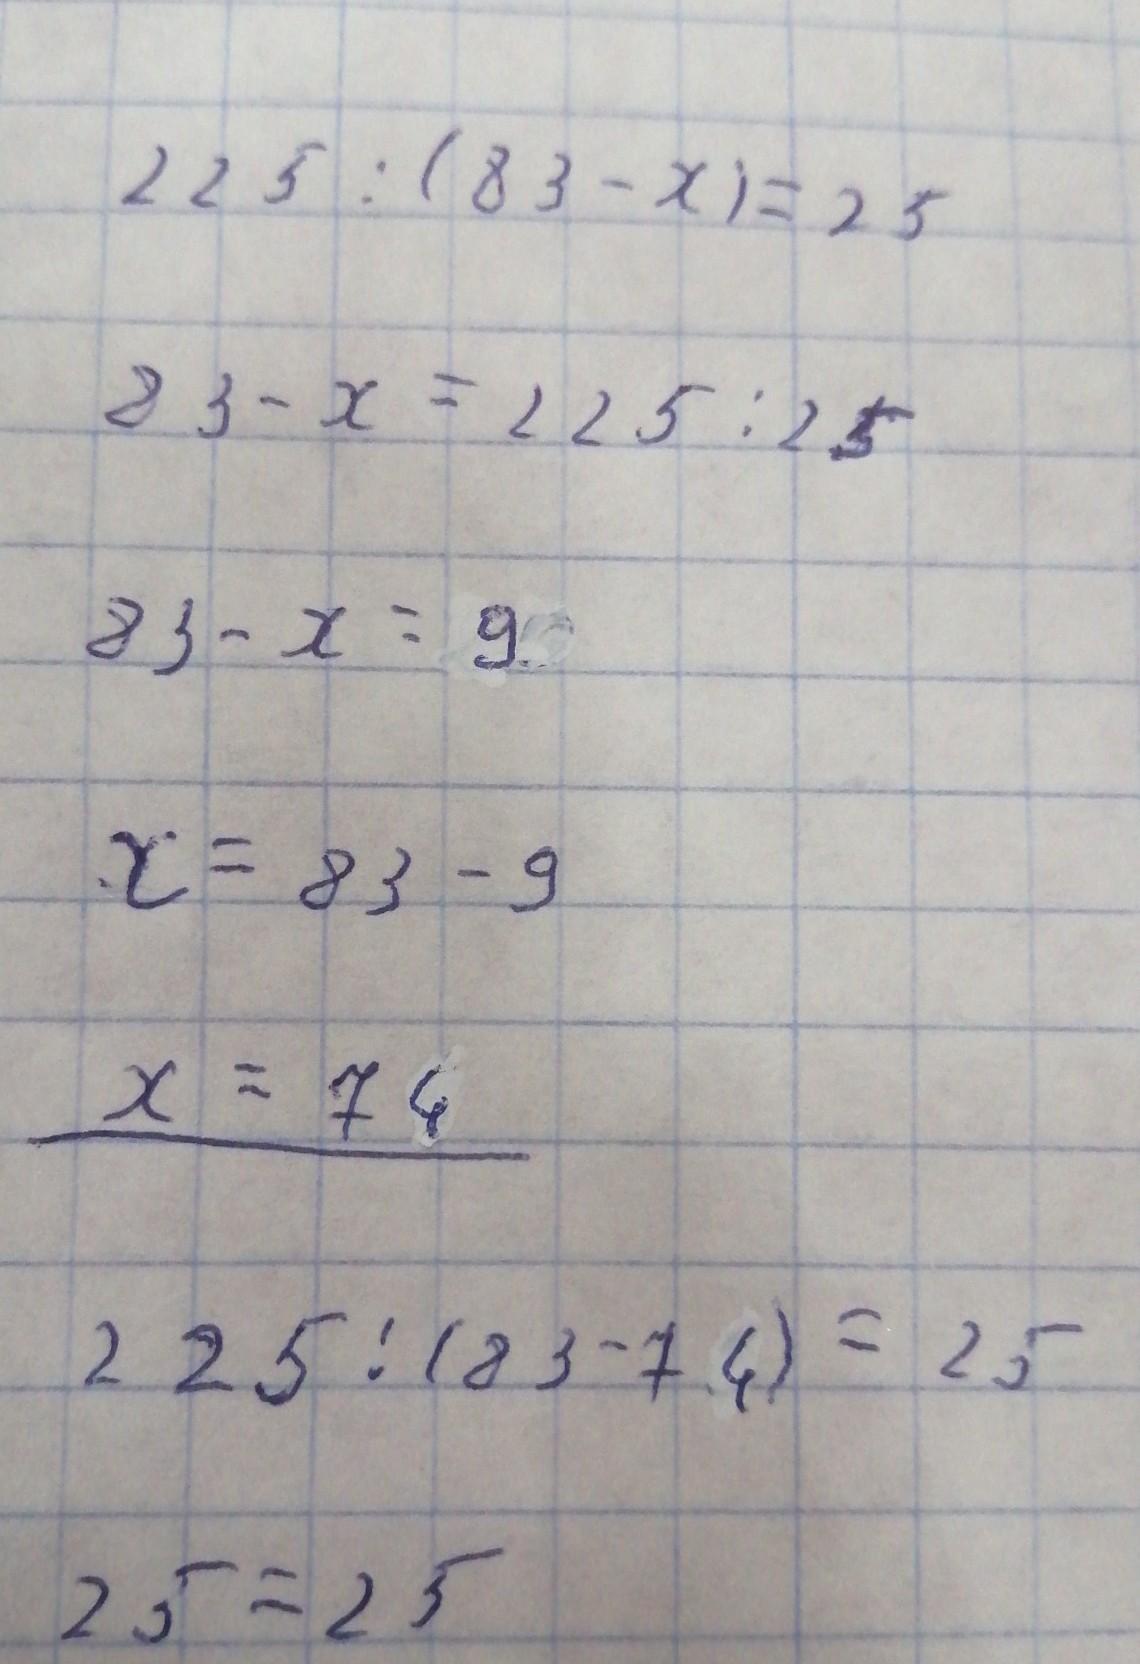 225 : (83 - x) = 25
83 - x = 225 : 25
83 - x = 9
x = 83 - 9
x = 74
225 : (83 - 74) = 25
25 = 25